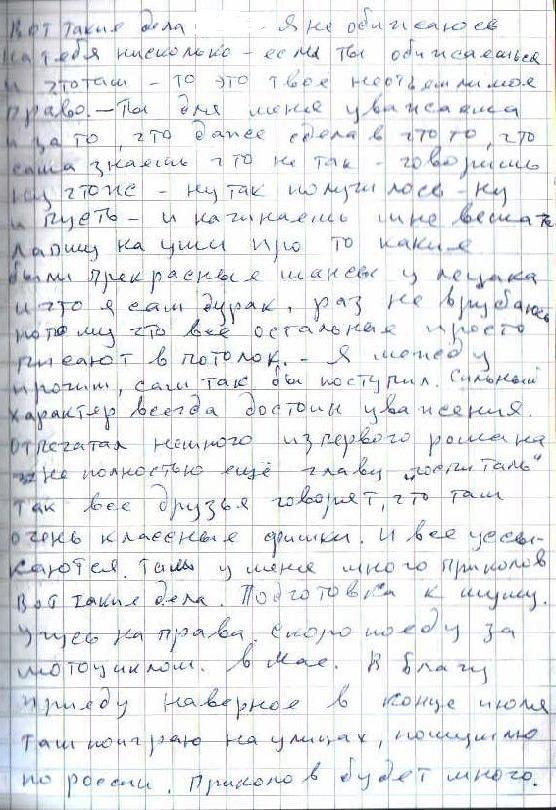 Вот такие дела - Я не обижаюсь
на тебя нисколько - если ты обижаешься
и чтоташ - то это твоё неотъемлимое
право. - Ты для меня уважаема
и за то, что даже сделав что то, что
сама знаешь что не так - говоришь
ну чтоже - ну так получилось - ну
и пусть - и начинаешь мне вешать
лапшу на уши про то какие
были прекрасные шансы у лешака
и что я сам дурак, раз не врубаюсь
потому что все остальные просто
писают в потолок. - Я между
прочим, сам так бы поступил. Сильный
характер всегда достоин уважения.
Отпечатал немного из первого романа
не полностью ещё главу "госпиталь"
так все друзья говорят, что там
очень классные фишки. И все уссы-
каются. Там у меня много приколов
Вот такие дела. Подготовка к шуму.
Учусь на права. Скоро поеду за
мотоциклом. В Мае. В Благу
приеду наверное в конце июля
там поиграю на улицах,
по россии. Приколов будет много.